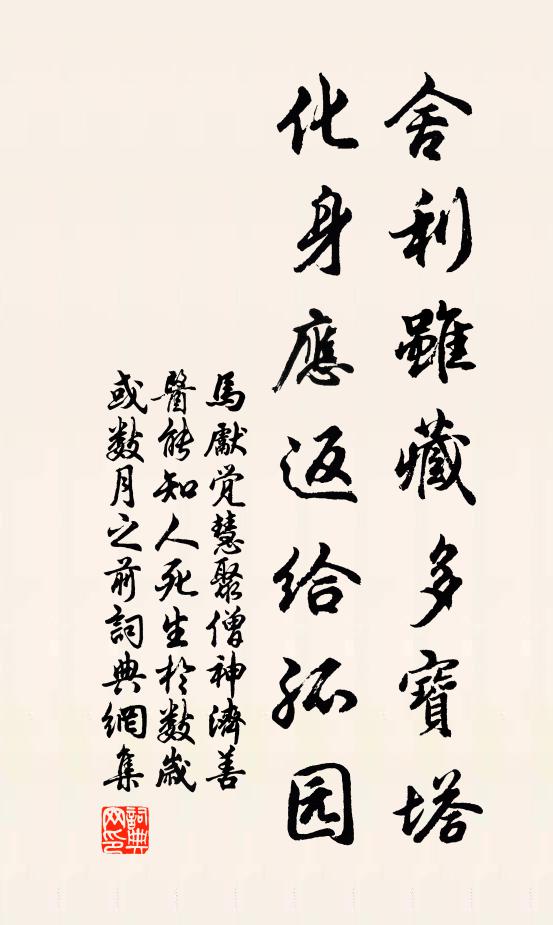 舍利雖藏多寶塔
化身應返給孤园
馬獻觉慧聚僧神濟善
醫能知人死生於数歲
或数月之前詞典網集
詞典網印